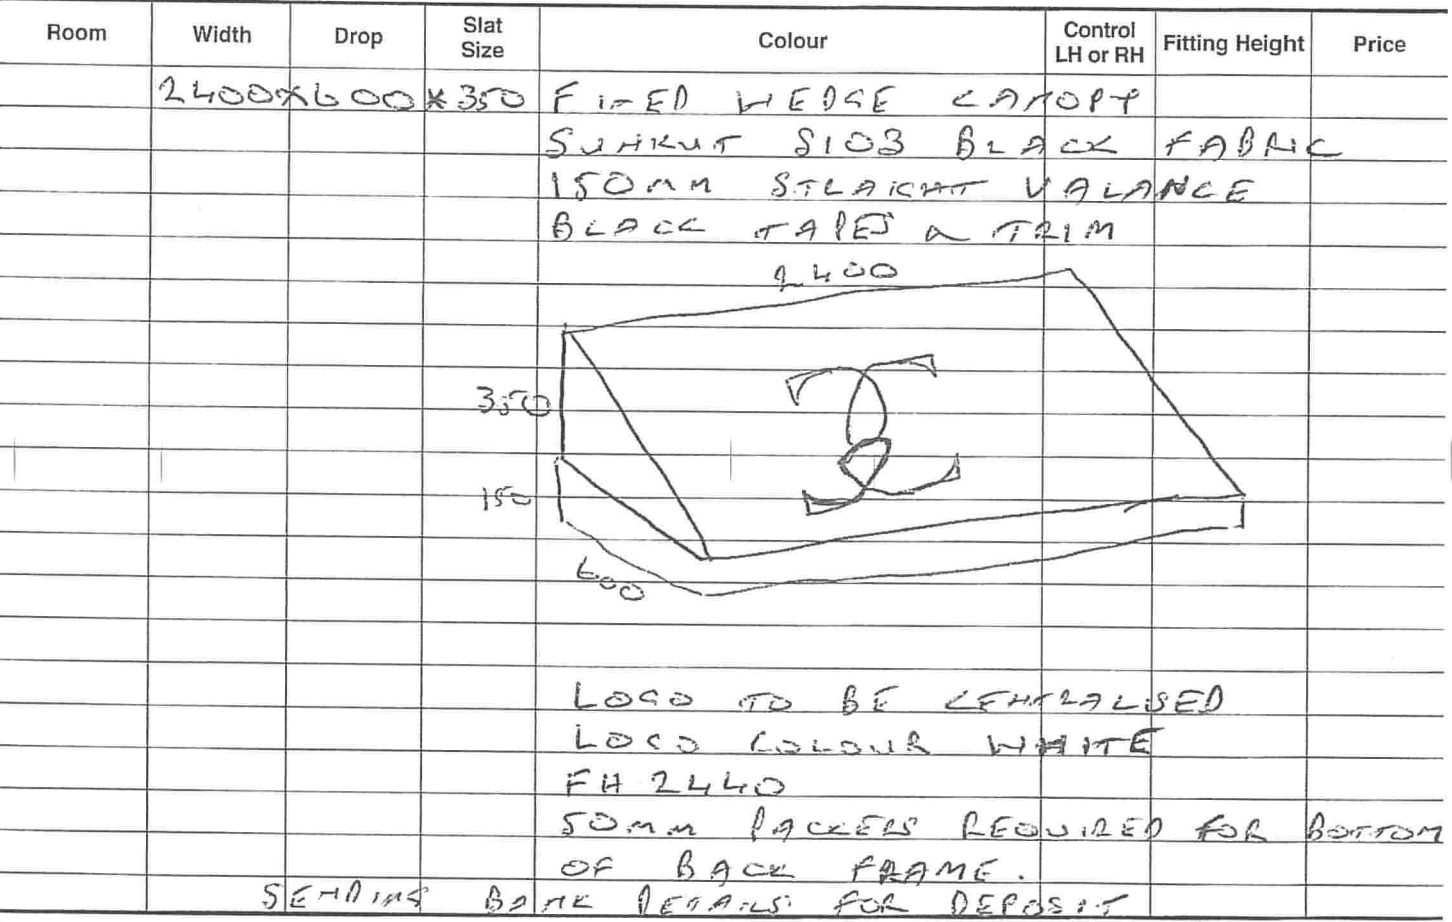 Room Width Drop Slat Size Colour Control LH or RH Fitting Height Price
2400 x 600 x 350 FIXED WEDGE CANOPY
SUNKUT 8103 BLACK FABRIC
150mm STRAIGHT VALANCE
BLACK TAPES & TRIM
2400
350
150
600
LOGO TO BE CENTRALISED
LOGO COLOUR WHITE
FH 2440
50mm PACKERS REQUIRED FOR BOTTOM
OF BACK FRAME.
SENDING BANK DETAILS FOR DEPOSIT